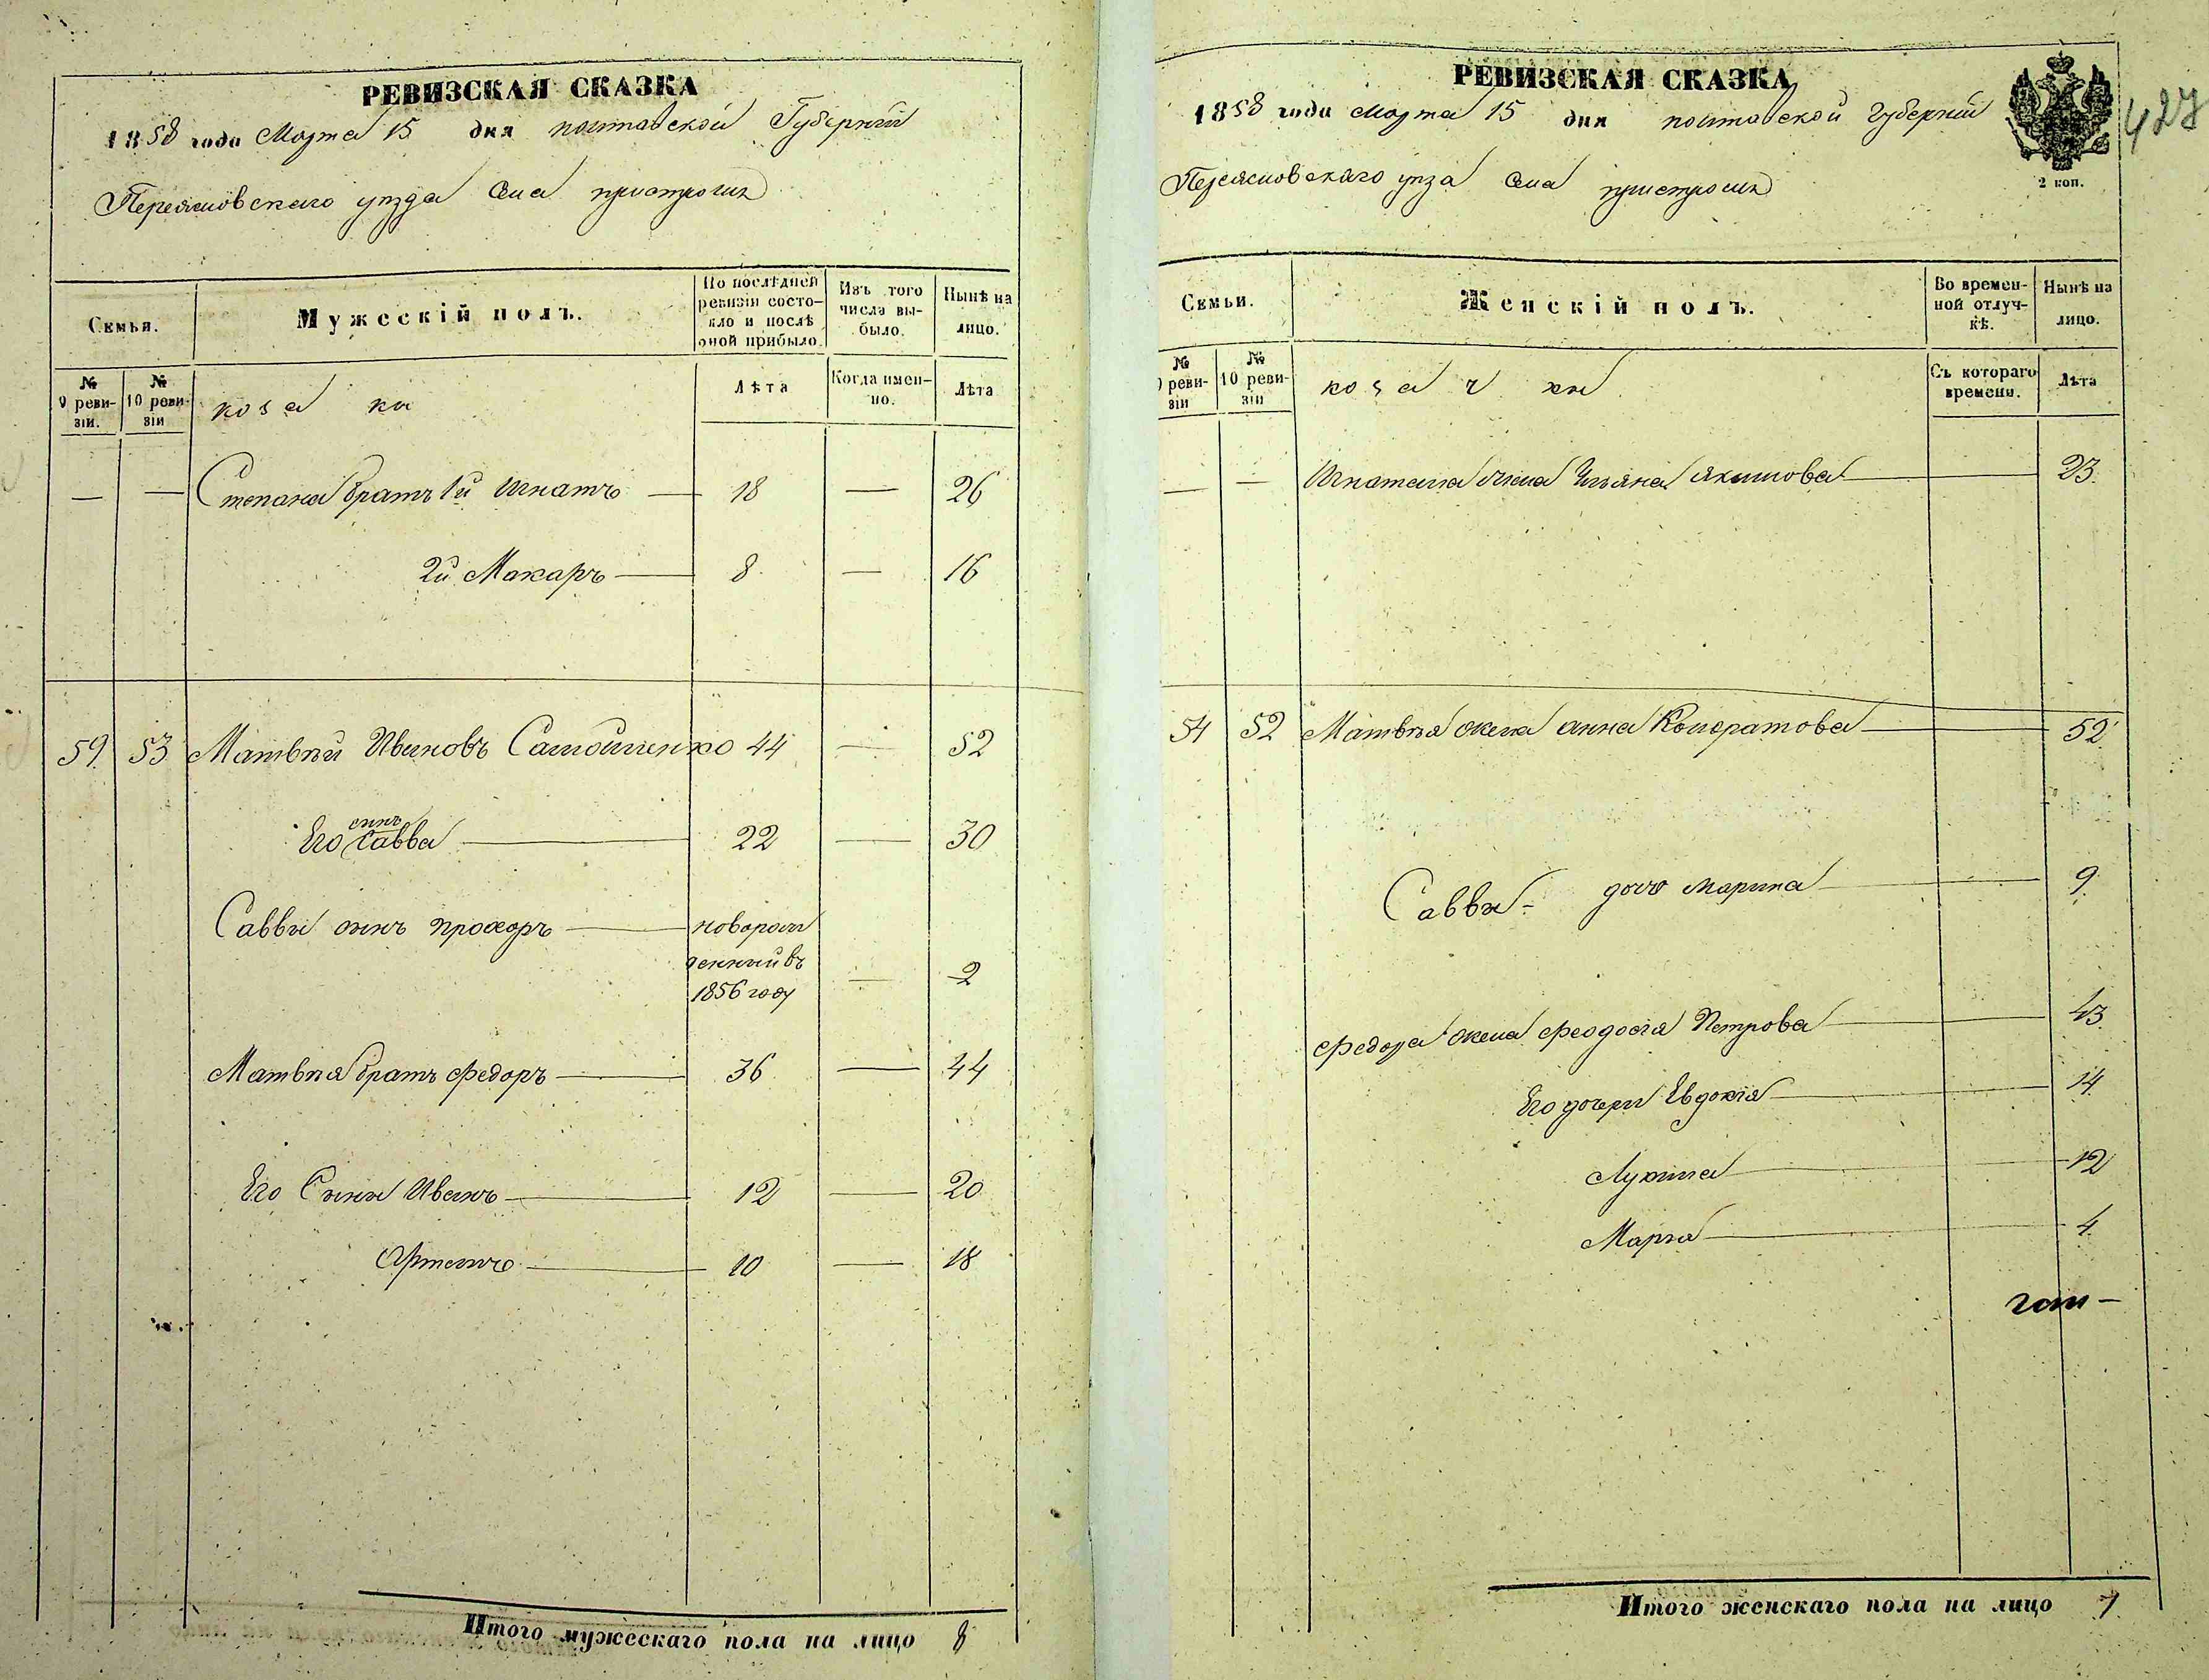 РЕВИЗСКАЯ СКАЗКА
1858 года Марта 15 дня полтавской Губернии
Переясловского уезда Села пристром
Семьи.
Мужескій полъ.
По послѣдней ревизіи состояло и послѣ оной прибыло.
Изъ того числа выбыло.
Нынѣ на лицо.
№ 9 ревизіи.
№ 10 ревизіи
козаки
Лѣта
Когда именно.
Лѣта
— — Степана братъ 1й Игнатъ — 18 — 26
2й Макаръ — 8 — 16
59 53 Матвѣй Ивановъ Самойленко 44 — 52
Его сынъ Савва — 22 — 30
Саввы сынъ Прохоръ — новорожденный въ 1856 году — 2
Матвѣя братъ Федоръ — 36 — 44
Его Сыны Иванъ — 12 — 20
Артемъ — 10 — 18
Итого мужескаго пола на лицо 8
РЕВИЗСКАЯ СКАЗКА
1858 года Марта 15 дня полтавской Губерніи
427
2 коп.
Переясловскаго уезда Села
Семьи.
Женскій полъ.
Во временной отлучкѣ.
Нынѣ на лицо.
№ 9 ревизіи
№ 10 ревизіи
козачки
Съ котораго времени.
Лѣта
— — Игната жена Ульяна Якимова — 23
54 52 Матвѣя жена Анна Кондратова — 52
Саввы — дочь Марина — 9
Федора жена Феодосія Петрова — 43
Его дочери Евдокія — 14
Лукина — 12
Марья — 4
Итого женскаго пола на лицо 7